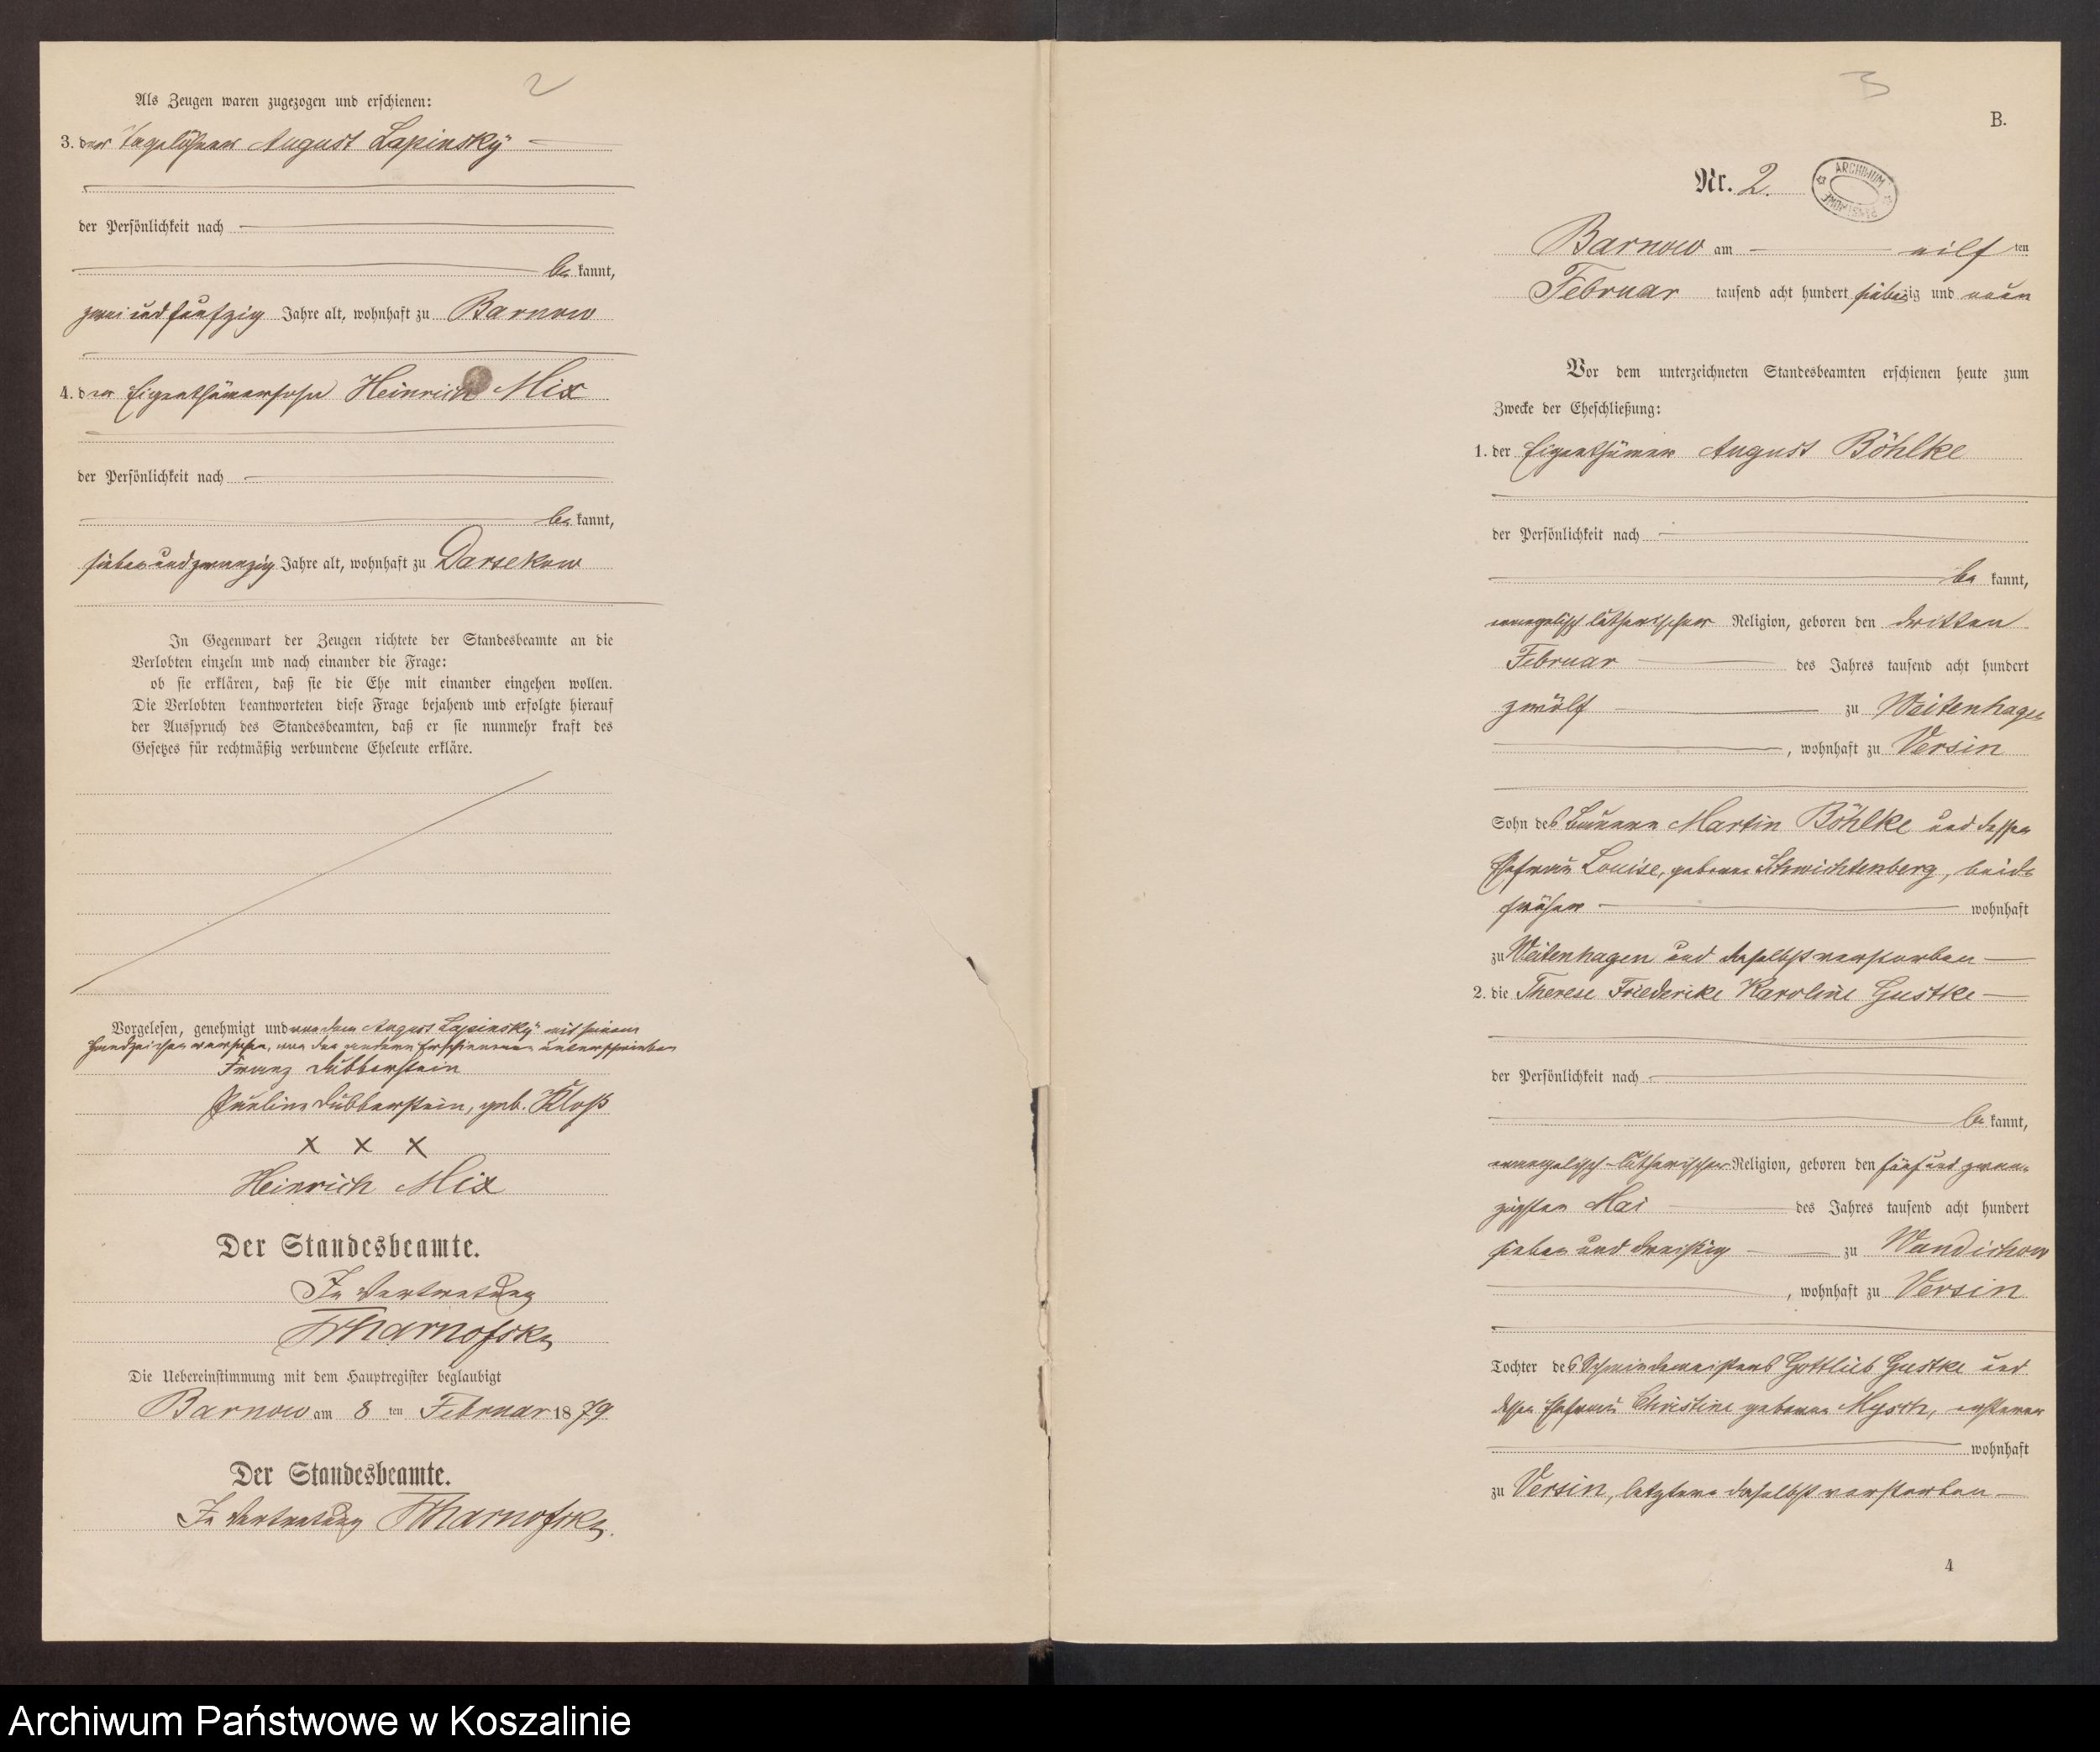 2
Als Zeugen waren zugezogen und erschienen:
3. der Tagelöhner August Lapinsky
der Persönlichkeit nach
be kannt,
zwei und fünfzig Jahre alt, wohnhaft zu Barnow
4. der Eigenthümersohn Heinrich Mix
der Persönlichkeit nach
be kannt,
sieben und zwanzig Jahre alt, wohnhaft zu Darsekow
In Gegenwart der Zeugen richtete der Standesbeamte an die
Verlobten einzeln und nach einander die Frage:
ob sie erklären, daß sie die Ehe mit einander eingehen wollen.
Die Verlobten beantworteten diese Frage bejahend und erfolgte hierauf
der Ausspruch des Standesbeamten, daß er sie nunmehr kraft des
Gesetzes für rechtmäßig verbundene Eheleute erkläre.
Vorgelesen, genehmigt und von dem August Lapinsky mit seinem
Handzeichen versehen, von den anderen Erschienenen unterschrieben
Franz Dubberstein
Pauline Dubberstein, geb. Kloß
X X X
Heinrich Mix
Der Standesbeamte.
In Vertretung
Die Uebereinstimmung mit dem Hauptregister beglaubigt
Barnow am 8 ten Februar 1879
Der Standesbeamte.
In Vertretung
3
B.
Nr. 2.
ARCHIWUM PAŃSTWOWE
Barnow am eilf ten
Februar tausend acht hundert siebenzig und neun
Vor dem unterzeichneten Standesbeamten erschienen heute zum
Zwecke der Eheschließung:
1. der Eigenthümer August Böhlke
der Persönlichkeit nach
be kannt,
evangelisch lutherischer Religion, geboren den dritten
Februar des Jahres tausend acht hundert
zwölf zu Weitenhagen
, wohnhaft zu Versin
Sohn des Martin Böhlke und dessen
Ehefrau Louise, geborne Schwichtenberg, beide
früher wohnhaft
zu Weitenhagen und daselbst verstorben
2. die Therese Friederike Karoline Gustke
der Persönlichkeit nach
be kannt,
evangelisch-lutherischer Religion, geboren den fünf und zwan-
zigsten Mai des Jahres tausend acht hundert
sieben und dreißig zu Wundichow
, wohnhaft zu Versin
Tochter des Schneidermeisters Gottlieb Gustke und
dessen Ehefrau Christine geborne Mysch, ersterer
wohnhaft
zu Versin, letztere daselbst verstorben
4
Archiwum Państwowe w Koszalinie